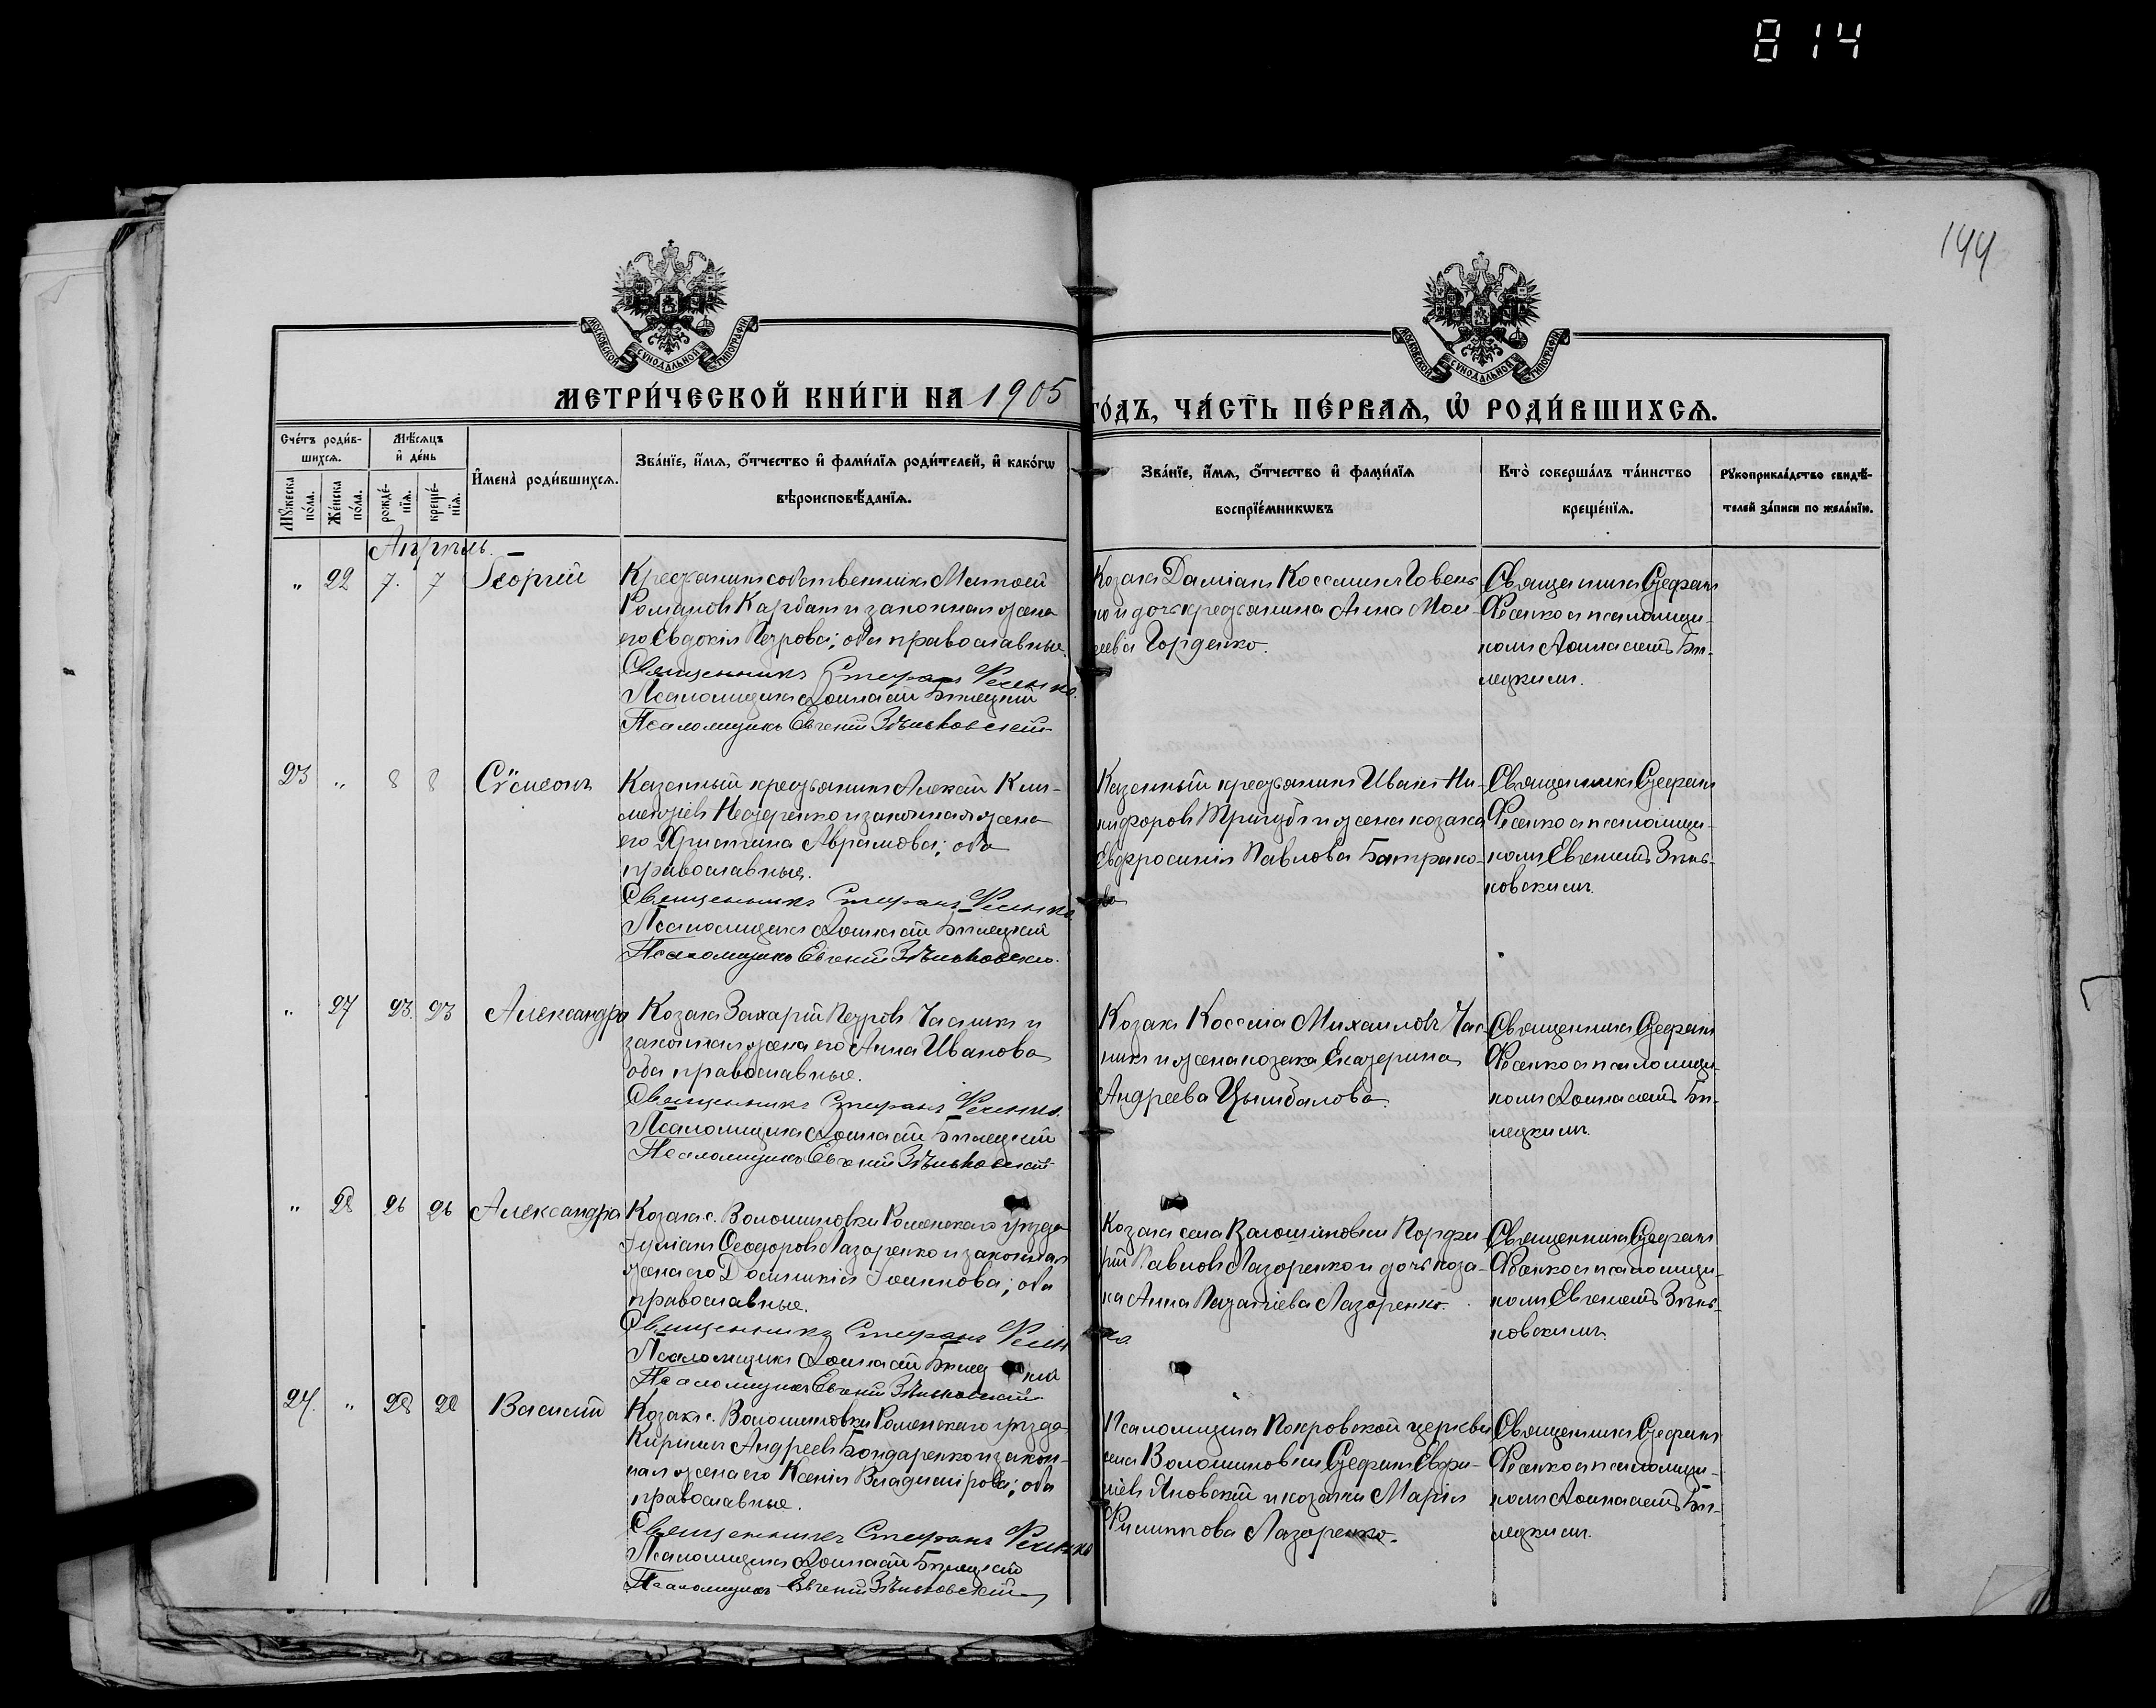 814
144
МОСКОВСКОЙ СѴНОДАЛЬНОЙ ТИПОГРАФІИ
МОСКОВСКОЙ СѴНОДАЛЬНОЙ ТИПОГРАФІИ
МЕТРИ́ЧЕСКОЙ КНИ́ГИ НА 1905
ГО́ДЪ, ЧА́СТЬ ПЕ́РВАЯ, Ѡ РОДИ́ВШИХСЯ.
Сче́тъ роди́в-
шихся.
Мѣ́сяцъ
и҆ де́нь
Мꙋ́жеска
по́ла.
Же́нска
по́ла.
рожде́-
нїя.
креще́-
нїя.
И҆мена̀ роди́вшихся.
Зва́нїе, и҆́мя, ѻ҆́тчество и҆ фами́лїя роди́телей, и҆ како́гѡ
вѣроисповѣ́данїя.
Зва́нїе, и҆́мя, ѻ҆́тчество и҆ фами́лїя
воспрїе́мникѡвъ
Кто̀ соверша́лъ та́инство
креще́нїя.
Рꙋкоприкла́дство свидѣ́-
телей за́писи по жела́нїю.
Апрѣль.
" 22 7. 7 Георгій
Крестьянинъ собственникъ Матѳей
Романовъ Карбанъ и законная жена
его Евдокія Петрова; оба православные.
Священникъ Стефанъ Фесенко.
Псаломщикъ Аѳанасій Бѣлецкій
Псаломщикъ Евгеній Зѣньковскій
Козакъ Даміанъ Коссминъ Говен
ко и дочь крестьянина Анна Мои-
сеева Горденко.
Священникъ Стефанъ
Фесенко съ псаломщи-
комъ Аѳанасіемъ Бѣ-
лецкимъ.
23 " 8 8 Сѵмеонъ
Казенный крестьянинъ Алексѣй Кли-
ментіевъ Нестеренко и законная жена
его Христина Аврамова; оба
православные.
Священникъ Стефанъ Фесенко
Псаломщикъ Аѳанасій Бѣлецкій
Псаломщикъ Евгеній Зѣньковскій
Казенный крестьянинъ Иванъ Ни-
кифоровъ Тригубъ и жена козака
Евфросинія Павлова Батрако-
ва
Священникъ Стефанъ
Фесенко съ псаломщи-
комъ Евгеніемъ Зѣнь-
ковскимъ.
" 27 23. 23 Александра
Козакъ Захарій Петровъ Часникъ и
законная жена его Анна Иванова
оба православные.
Священникъ Стефанъ Фесенко.
Псаломщикъ Аѳанасій Бѣлецкій
Псаломщикъ Евгеній Зѣньковскій
Козакъ Коссма Михаиловъ Час-
никъ и жена козака Екатерина
Андреева Цымбалова.
Священникъ Стефанъ
Фесенко съ псаломщи-
комъ Аѳанасіемъ Бѣ-
лецкимъ.
" 28 26 26 Александра
Козакъ с. Волошиновки Роменскаго уѣзда
Іуліанъ Ѳеодоровъ Лазоренко и законная
жена его Домникія Іоаннова; оба
православные.
Священникъ Стефанъ Фесен
Псаломщикъ Аѳанасій Бѣлецкій
Псаломщикъ Евгеній Зѣньковскій
Козакъ села Волошиновки Порфи
рій Павловъ Лазоренко и дочь коза-
ка Анна Лазоренко.
ко
Священникъ Стефанъ
Фесенко съ псаломщи-
комъ Евгеніемъ Зѣнь-
ковскимъ.
24. " 28 28 Василій
Козакъ с. Волошиновки Роменскаго уѣзда
Кириллъ Андреевъ Бондаренко и закон-
ная жена его Ксенія Владимірова; оба
православные.
Священникъ Стефанъ Фесенко
Псаломщикъ Аѳанасій Бѣлецкій
Псаломщикъ Евгеній Зѣньковскій
Псаломщикъ Покровской церкви
села Волошиновки Стефанъ Евфи-
міевъ Яновскій и козачка Марія
Филиппова Лазоренко.
Священникъ Стефанъ
Фесенко съ псаломщи-
комъ Аѳанасіемъ Бѣ-
лецкимъ.